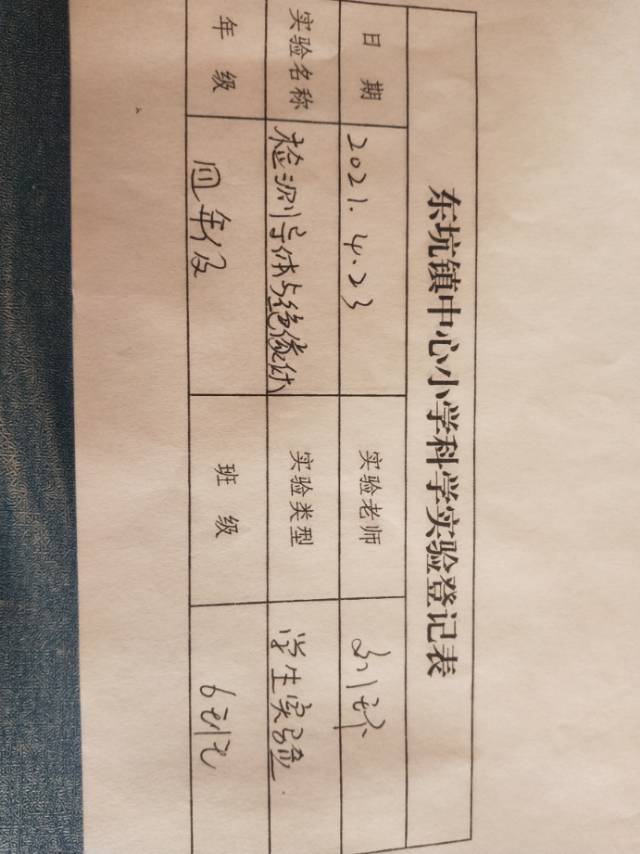 东坑镇中心小学科学实验登记表
日 期 2021.4.23 实验老师
实验名称 检测导体与绝缘体 实验类型 学生实验
年 级 四年级 班 级 6班